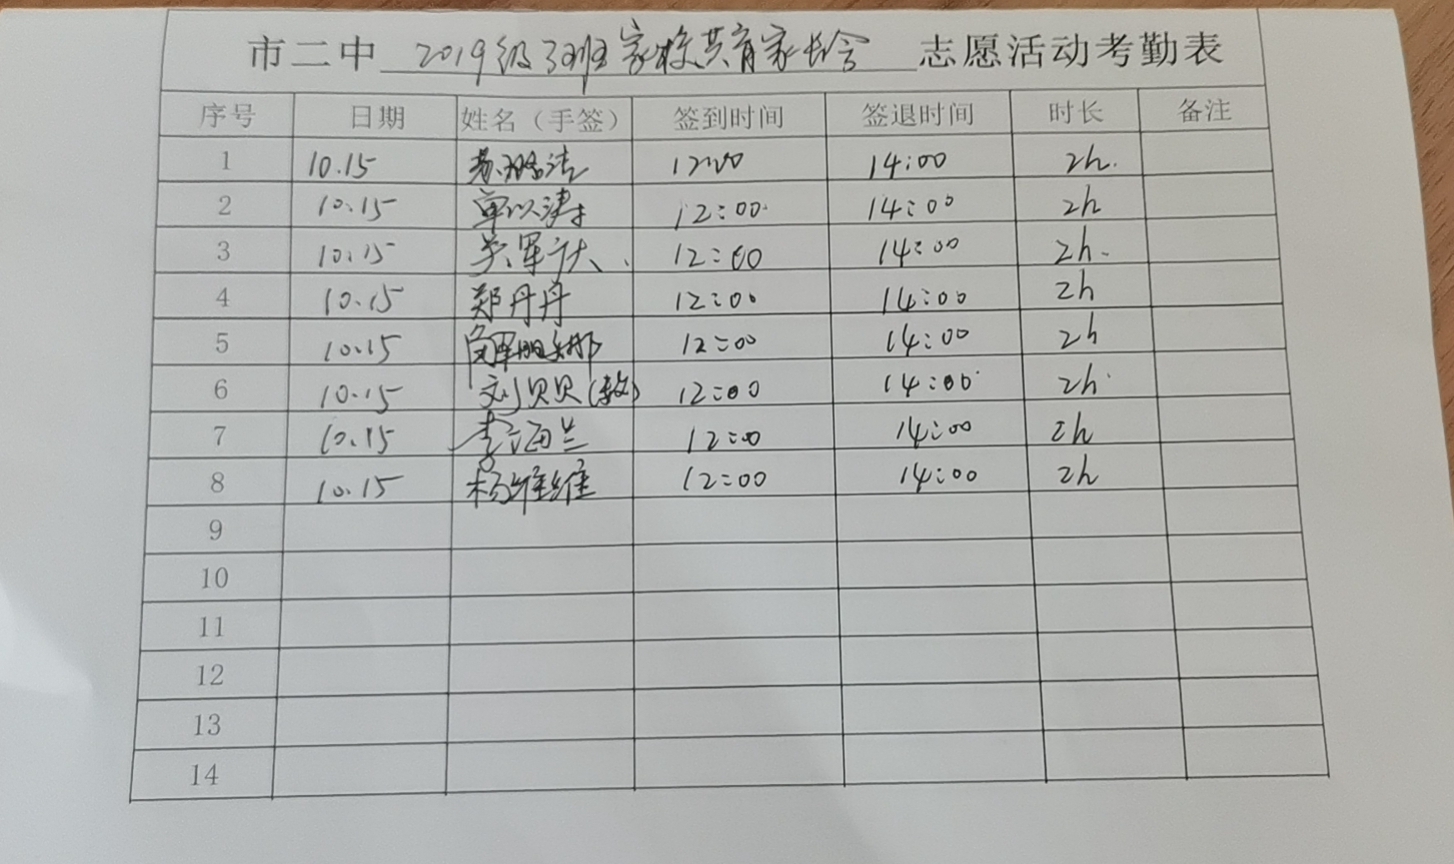 市二中 2019级3班家校共育家长会 志愿活动考勤表
序号 日期 姓名（手签） 签到时间 签退时间 时长 备注
1 10.15 12:00 14:00 2h.
2 10.15 单以津 12:00 14:00 2h
3 10.15 吴军庆 12:00 14:00 2h.
4 10.15 郑丹丹 12:00 14:00 2h
5 10.15 12:00 14:00 2h
6 10.15 刘贝贝(教) 12:00 14:00 2h
7 10.15 李海兰 12:00 14:00 2h
8 10.15 杨维维 12:00 14:00 2h
9
10
11
12
13
14